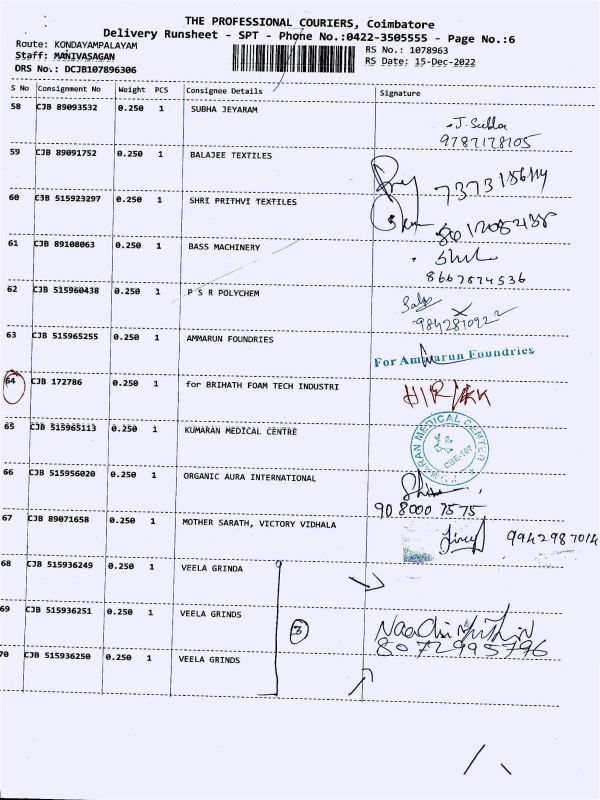 THE PROFESSIONAL COURIERS, Coimbatore
Delivery Runsheet - SPT - Phone No.:0422-3505555 - Page No.:6
Route: KONDAYAMPALAYAM
RS No.: 1078963
Staff: MANIVASAGAN
RS Date: 15-Dec-2022
DRS No.: DCJB107896306
S No Consignment No Weight PCS Consignee Details Signature
58 CJB 89093532 0.250 1 SUBHA JEYARAM
J. Subha
9787178105
59 CJB 89091752 0.250 1 BALAJEE TEXTILES
60 CJB 515923297 0.250 1 SHRI PRITHVI TEXTILES
61 CJB 89108063 0.250 1 BASS MACHINERY
8667874536
62 CJB 515960438 0.250 1 P S R POLYCHEM
63 CJB 515965255 0.250 1 AMMARUN FOUNDRIES
For Ammarun Foundries
64 CJB 172786 0.250 1 for BRIHATH FOAM TECH INDUSTRI
H/R/KK
65 CJB 515965113 0.250 1 KUMARAN MEDICAL CENTRE
MEDICAL CENTER
CBE-107
66 CJB 515956020 0.250 1 ORGANIC AURA INTERNATIONAL
90 8000 7575
67 CJB 89071658 0.250 1 MOTHER SARATH, VICTORY VIDHALA
9942987014
68 CJB 515936249 0.250 1 VEELA GRINDA
69 CJB 515936251 0.250 1 VEELA GRINDS
3
70 CJB 515936250 0.250 1 VEELA GRINDS
8072995796